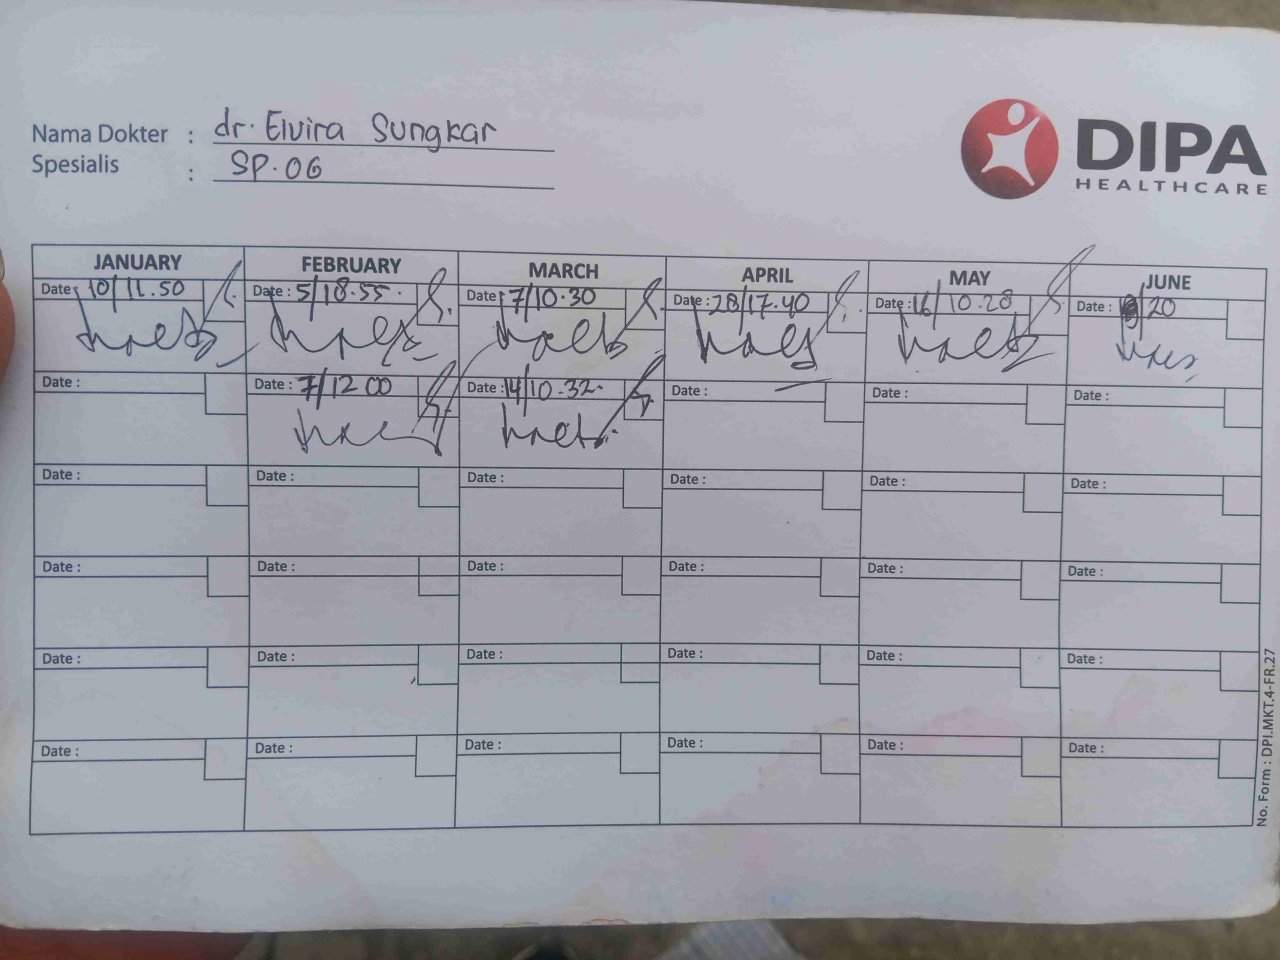 Nama Dokter : dr. Elvira Sungkar
Spesialis : SP.OG
DIPA
HEALTHCARE
JANUARY FEBRUARY MARCH APRIL MAY JUNE
Date : 10/11.50 Date : 5/18.55. Date : 7/10.30 Date : 28/17.40 Date : 16/10.28 Date : /20
Date : Date : 7/12 00 Date : 14/10.32. Date : Date : Date :
Date : Date : Date : Date : Date : Date :
Date : Date : Date : Date : Date : Date :
Date : Date : Date : Date : Date : Date :
Date : Date : Date : Date : Date : Date :
No. Form : DPI.MKT.4-FR.27